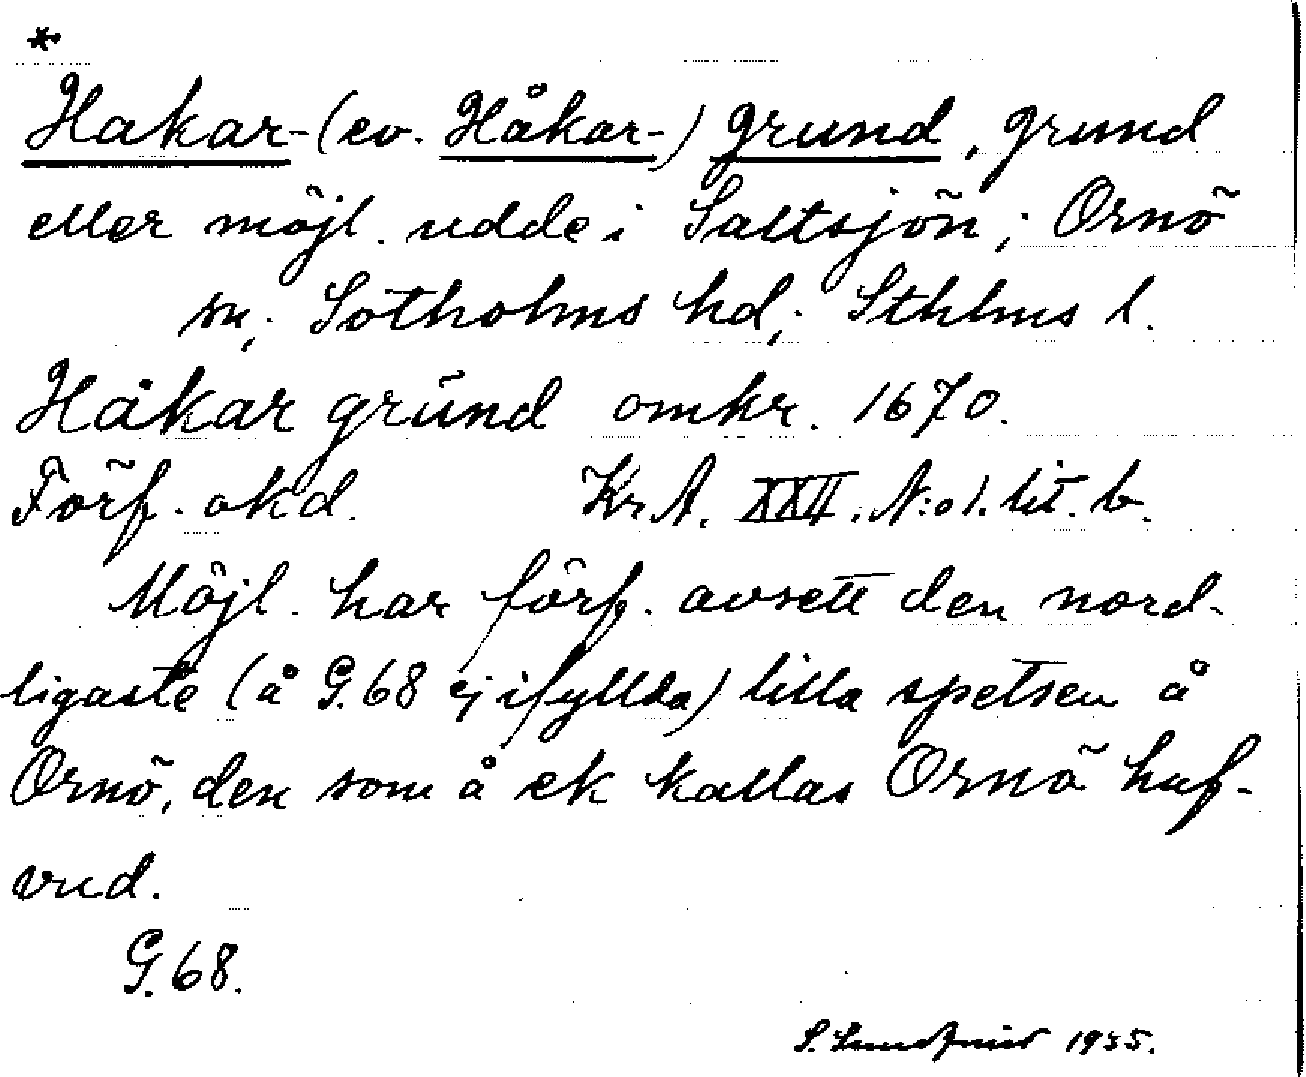 *
Hakar- (ev. Håkar-) grund, grund
eller möjl. udde i Saltsjön; Ornö
sn; Sotholms hd; Sthlms l.
Håkar grŭnd omkr. 1670.
Förf. okd. Kr.A. XXII. N:o 1. lit. b.
Möjl. har förf. avsett den nord-
ligaste (å G.68 ej ifyllda) lilla spetsen å
Ornö, den som å ek kallas Ornö huf-
vud.
G.68.
S. 1935.